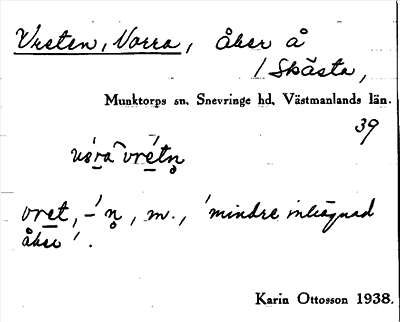 Vreten, Norra, åker å
/ Skästa,
Munktorps sn. Snevringe hd. Västmanlands län.
39
vret, -´n̥, m., 'mindre inhägnad
åker'.
Karin Ottosson 1938.